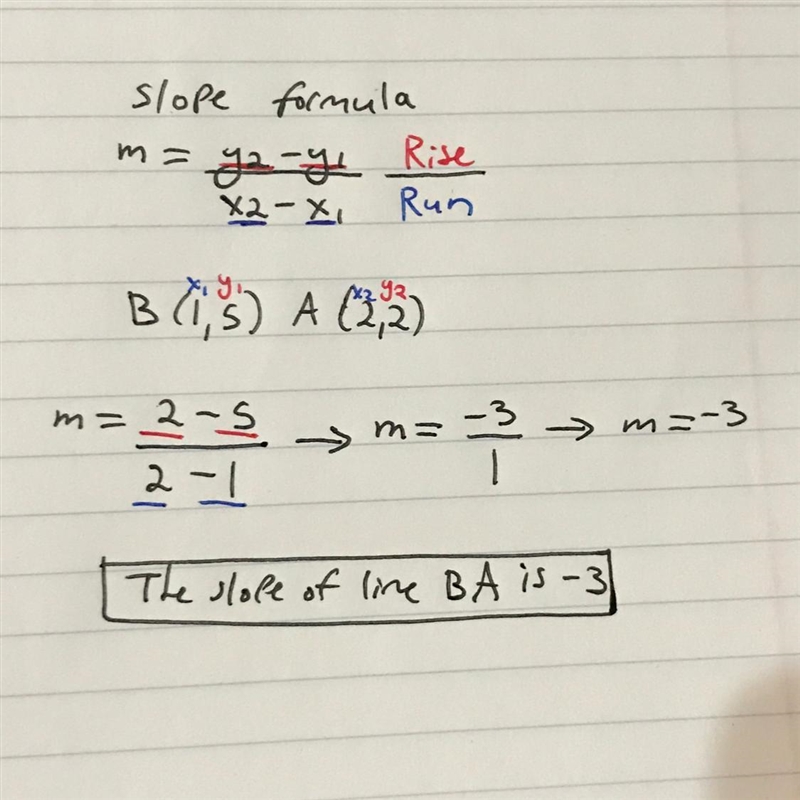 slope formula
m = y2 - y1 / x2 - x1 Rise / Run
x1 y1 x2 y2
B (1,5) A (2,2)
m = 2 - 5 / 2 - 1 → m = -3 / 1 → m = -3
The slope of line BA is -3